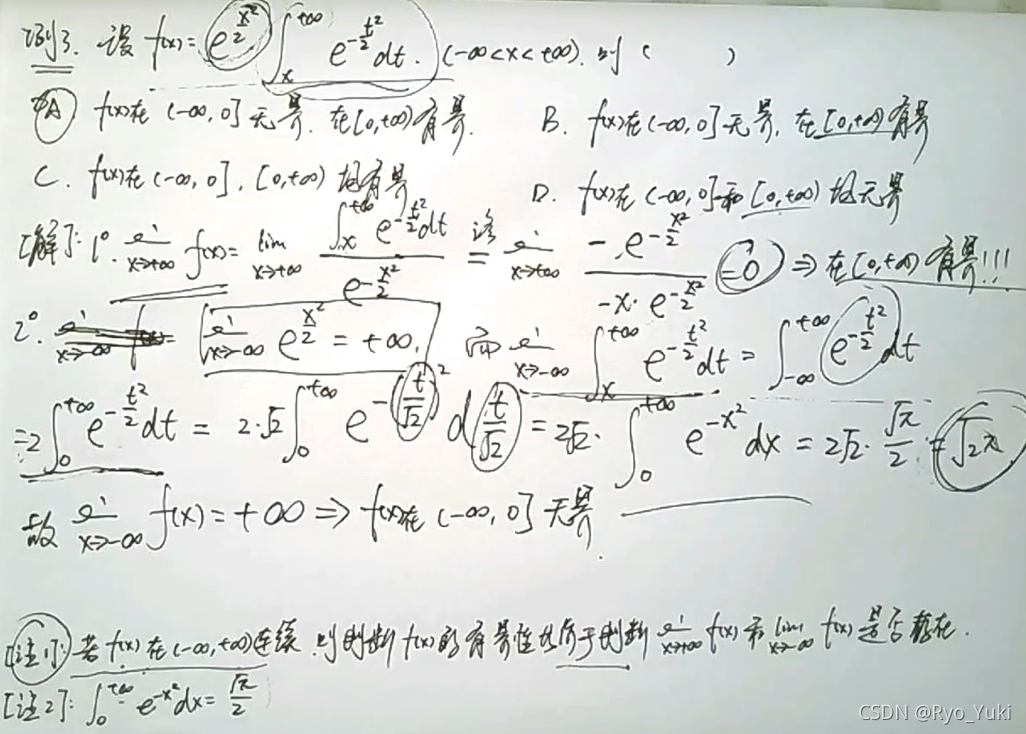 例3. 设 f(x)= e^{x²/2} ∫_x^{+∞} e^{-t²/2} dt. (-∞<x<+∞). 则 ( )
A f(x)在 (-∞,0] 无界. 在[0,+∞)有界. B. f(x)在(-∞,0] 无界, 在[0,+∞)有界
C. f(x)在(-∞,0], [0,+∞) 均有界 D. f(x)在(-∞,0]和[0,+∞) 均无界
[解]: 1° lim_{x→+∞} f(x)= lim_{x→+∞} ∫_x^{+∞} e^{-t²/2}dt / e^{-x²/2} = 洛 lim_{x→+∞} -e^{-x²/2} / -x·e^{-x²/2} =0 ⇒ 在[0,+∞) 有界!!!
2°. lim_{x→-∞} e^{x²/2} = +∞. 而 lim_{x→-∞} ∫_x^{+∞} e^{-t²/2}dt = ∫_{-∞}^{+∞} e^{-t²/2}dt
=2∫_0^{+∞} e^{-t²/2}dt = 2·√2 ∫_0^{+∞} e^{-(t/√2)²} d t/√2 = 2√2· ∫_0^{+∞} e^{-x²} dx = 2√2· √π/2 = √2π
故 lim_{x→-∞} f(x)=+∞ ⇒ f(x)在 (-∞,0] 无界.
[注1]: 若 f(x) 在(-∞,+∞)连续, 则判断 f(x)的有界性 于判断 lim_{x→+∞} f(x) 和 lim_{x→-∞} f(x) 是否存在.
[注2]: ∫_0^{+∞} e^{-x²}dx= √π/2
CSDN @Ryo_Yuki